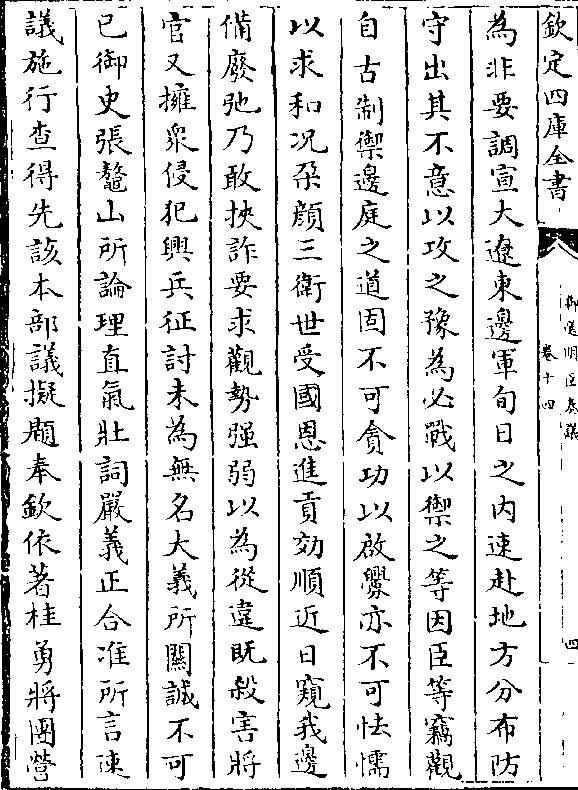 欽定四庫全書
御選明臣奏議
卷十四
四
為非要調宣大遼東邊軍旬日之內速赴地方分布防
守出其不意以攻之豫為必戰以禦之等因臣等竊觀
自古制禦邊庭之道固不可貪功以啟釁亦不可怯懦
以求和况朶顏三衛世受國恩進貢効順近日窺我邊
備廢弛乃敢挾詐要求觀勢强弱以為從違旣殺害將
官又擁衆侵犯興兵征討未為無名大義所關誠不可
已御史張鼇山所論理直氣壯詞嚴義正合准所言速
議施行查得先該本部議擬題奉欽依著桂勇將團營